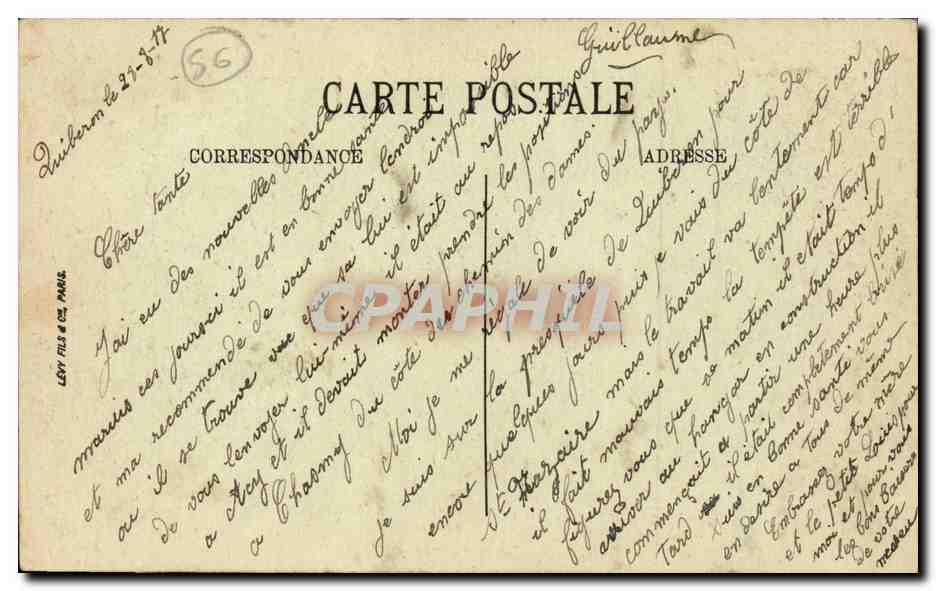 56
Guillaume
Quiberon le 29-8-17
CARTE POSTALE
CORRESPONDANCE
ADRESSE
LÉVY FILS & Cie, PARIS.
CPAPHIL
Chère tante
J'ai eu des nouvelles doncle
marius ces jours ci il est en bonne santé
et ma recommendé de vous envoyer lendroi
ou il se trouve vue que sa lui est impossible
de vous lenvoyer lui même il était au repos
a Acy et il devait monter prendre les positions
a Chasmy du côté des chemin des dames.
Moi je me régale de voir du pays.
je suis sur la presqu'ile de Quiberon pour
encore quelques jours puis je vais du côté de
St Nazaire mais le travail va lentement car
il fait mauvais temps la tempête est terrible
figurez vous que ce matin il etait temps d'
arriver au hangar en construction il
commençait a partir une heure plus
Tard il était complètement
suis en bonne santé vous
en desire a Tous de même
Embrassez votre mère
et le petit Louis pour
moi et pour vous
les bons baisers
de votre
neveu